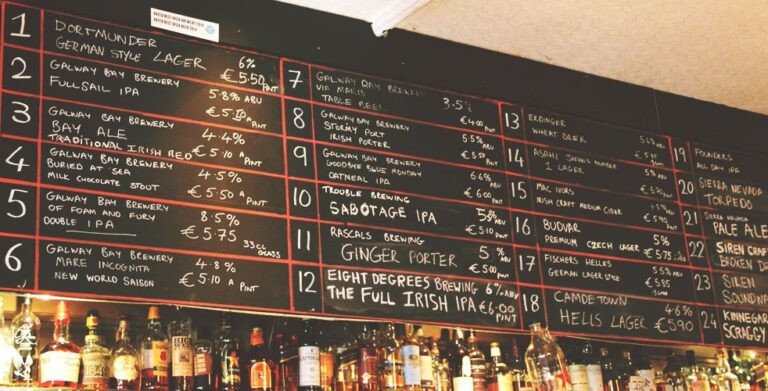 1
DORTMUNDER
GERMAN STYLE LAGER 6%
€5.50 PINT
2
GALWAY BAY BREWERY
FULL SAIL IPA 5.8% ABV
3
GALWAY BAY BREWERY 4.4%
BAY ALE
TRADITIONAL IRISH RED €5.10 A PINT
4
GALWAY BAY BREWERY
BURIED AT SEA 4.5%
MILK CHOCOLATE STOUT €5.50 A PINT
5
GALWAY BAY BREWERY
OF FOAM AND FURY 8.5%
DOUBLE IPA €5.75 33CL GLASS
6
GALWAY BAY BREWERY
MARE INCOGNITA 4.8%
NEW WORLD SAISON €5.10 A PINT
7
GALWAY BAY BREWERY
VIA MARIS 3.5%
TABLE BEER €4.00 PINT
8
GALWAY BAY BREWERY
STORMY PORT 5.5%
IRISH PORTER €5.50 PINT
9
GALWAY BAY BREWERY
GOODBYE BLUE MONDAY 6.6%
OATMEAL IPA €6.00 PINT
10
TROUBLE BREWING 5% ABV
SABOTAGE IPA €5.50 PINT
11
RASCALS BREWING 5% ABV
GINGER PORTER €5.00 PINT
12
EIGHT DEGREES BREWING 6% ABV
THE FULL IRISH IPA €6.00 PINT
13
ERDINGER
WHEAT BEER
14
ASAHI JAPANS NUMBER 1
LAGER 5%
15
MAC IVORS
IRISH CRAFT MEDIUM CIDER
16
BUDVAR 5%
PREMIUM CZECH LAGER €5.75
17
FISCHERS HELLES 5%
GERMAN STYLE LAGER
18
CAMDETOWN 4.6%
HELLS LAGER €5.90 PINT
19
FOUNDERS
ALL DAY IPA
20
SIERRA NEVADA
TORPEDO
21
SIERRA NEVADA
PALE ALE
22
SIREN CRAFT
BROKEN DR
23
SIREN
SOUNDWA
24
KINNEGAR
SCRAGGY